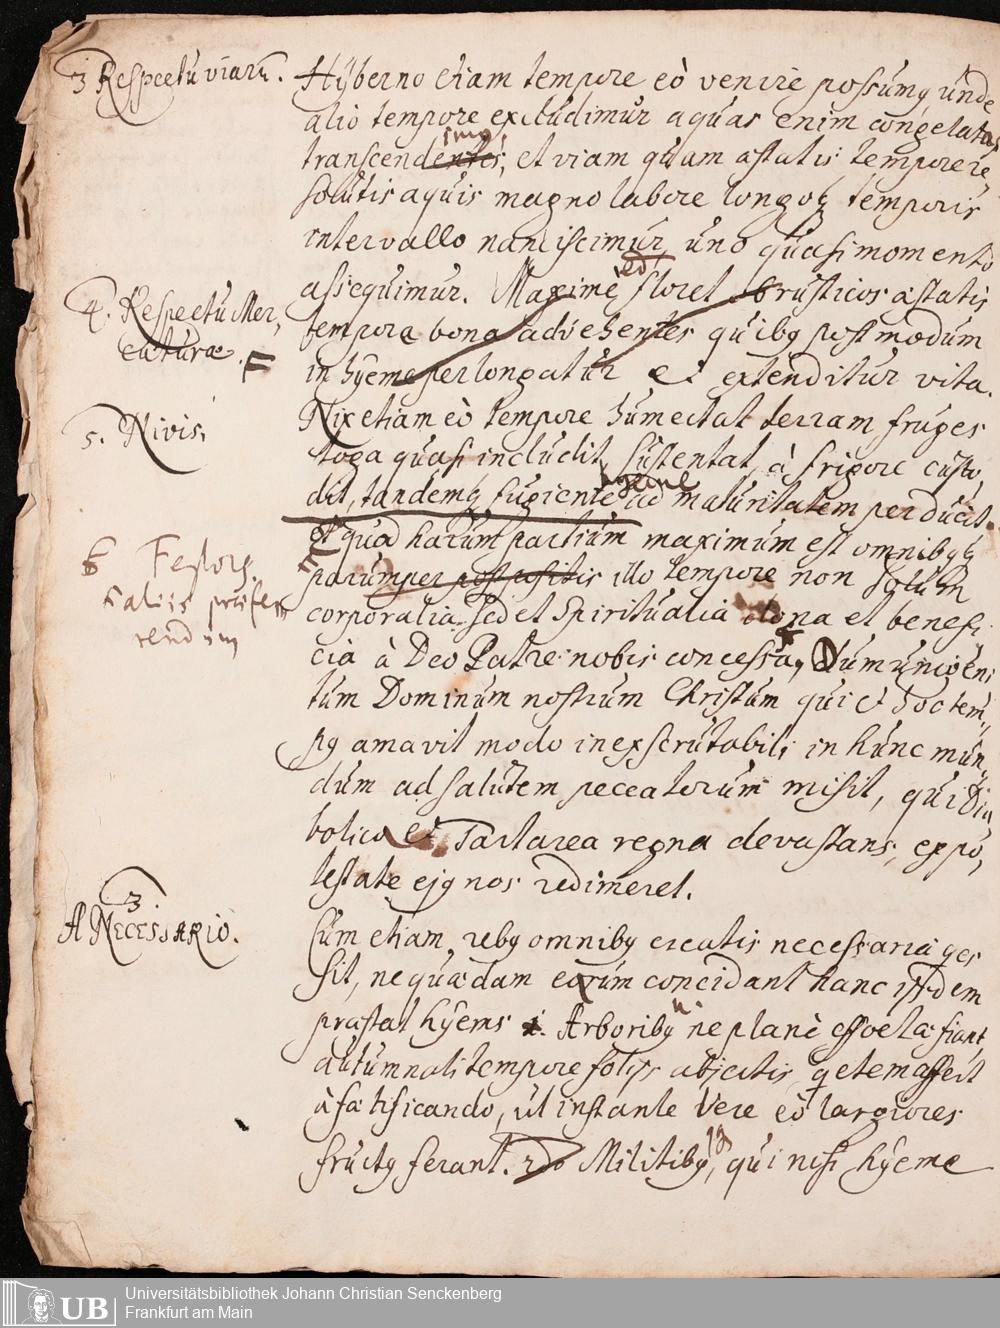 3 Respectu viarū.
Hÿberno etiam tempore eò venire possumꝰ, unde
alio tempore excludimur aquas enim congelatas
imꝰ
transcendentes, et viam quam æstatis tempore re,
solutis aquis magno labore longoqꝫ temporis
intervallo nanciscimur uno quasi momento
assequimur.
4. Respectu Mer,
caturæ.
Maxime eò floret rusticos æstatis
tempora bona advehentes quibꝰ postmodum
in hÿeme perlongatur et extenditur vita.
5. Nivis,
Nix etiam eò tempore humectat terram fruges
toga quasi includit, sustentat, à frigore custo,
hyeme
dit, tandemqꝫ fugiente ad maturitatem perducit.
6 Festorꝫ
aliis præfe
rendum
et quod harum partium maximum est omnibꝰqꝫ
parumper postpositis illo tempore non solum
corporalia sed et spiritualia dona et benefi,
cia à Deo Patre nobis concessa, Dum unigeni
tum Dominum nostrum Christum qui et hoc tem,
pꝰ amavit modo inexscrutabili in hunc mun,
dum ad salutem peccatorum misit, qui Dia,
bolica et Tartarea regna devastans, ex po,
testate ejꝰ nos redimeret.
3
A NECESSARIO.
Cum etiam rebꝰ omnibꝰ creatis necessaria qes
sit, ne quædam eorum concidant hanc iisdem
præstat hÿems 1. Arboribꝰ ne planè effoetæ fiant
autumnali tempore folijs abjectis, qetem affert
à fatificando, ut instante Vere eò largiores
fructꝰ ferant. 2do Militibꝰ, qui nisi hÿeme
Universitätsbibliothek Johann Christian Senckenberg
Frankfurt am Main
UB